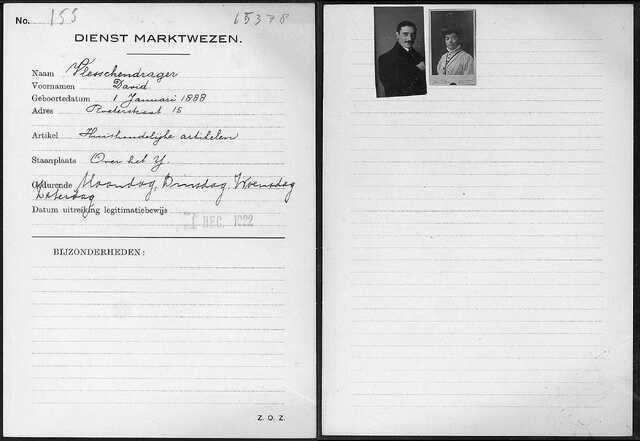 No. 155 15378
DIENST MARKTWEZEN.
Naam Vlesschendrager
Voornamen David
Geboortedatum 1 Januari 1888
Adres Roeterstraat 15
Artikel Huishoudelijke artikelen
Staanplaats Over het Y.
Gedurende Maandag, Dinsdag, Woensdag
Zaterdag
Datum uitreiking legitimatiebewijs DEC. 1922
BIJZONDERHEDEN:
Z. O. Z.